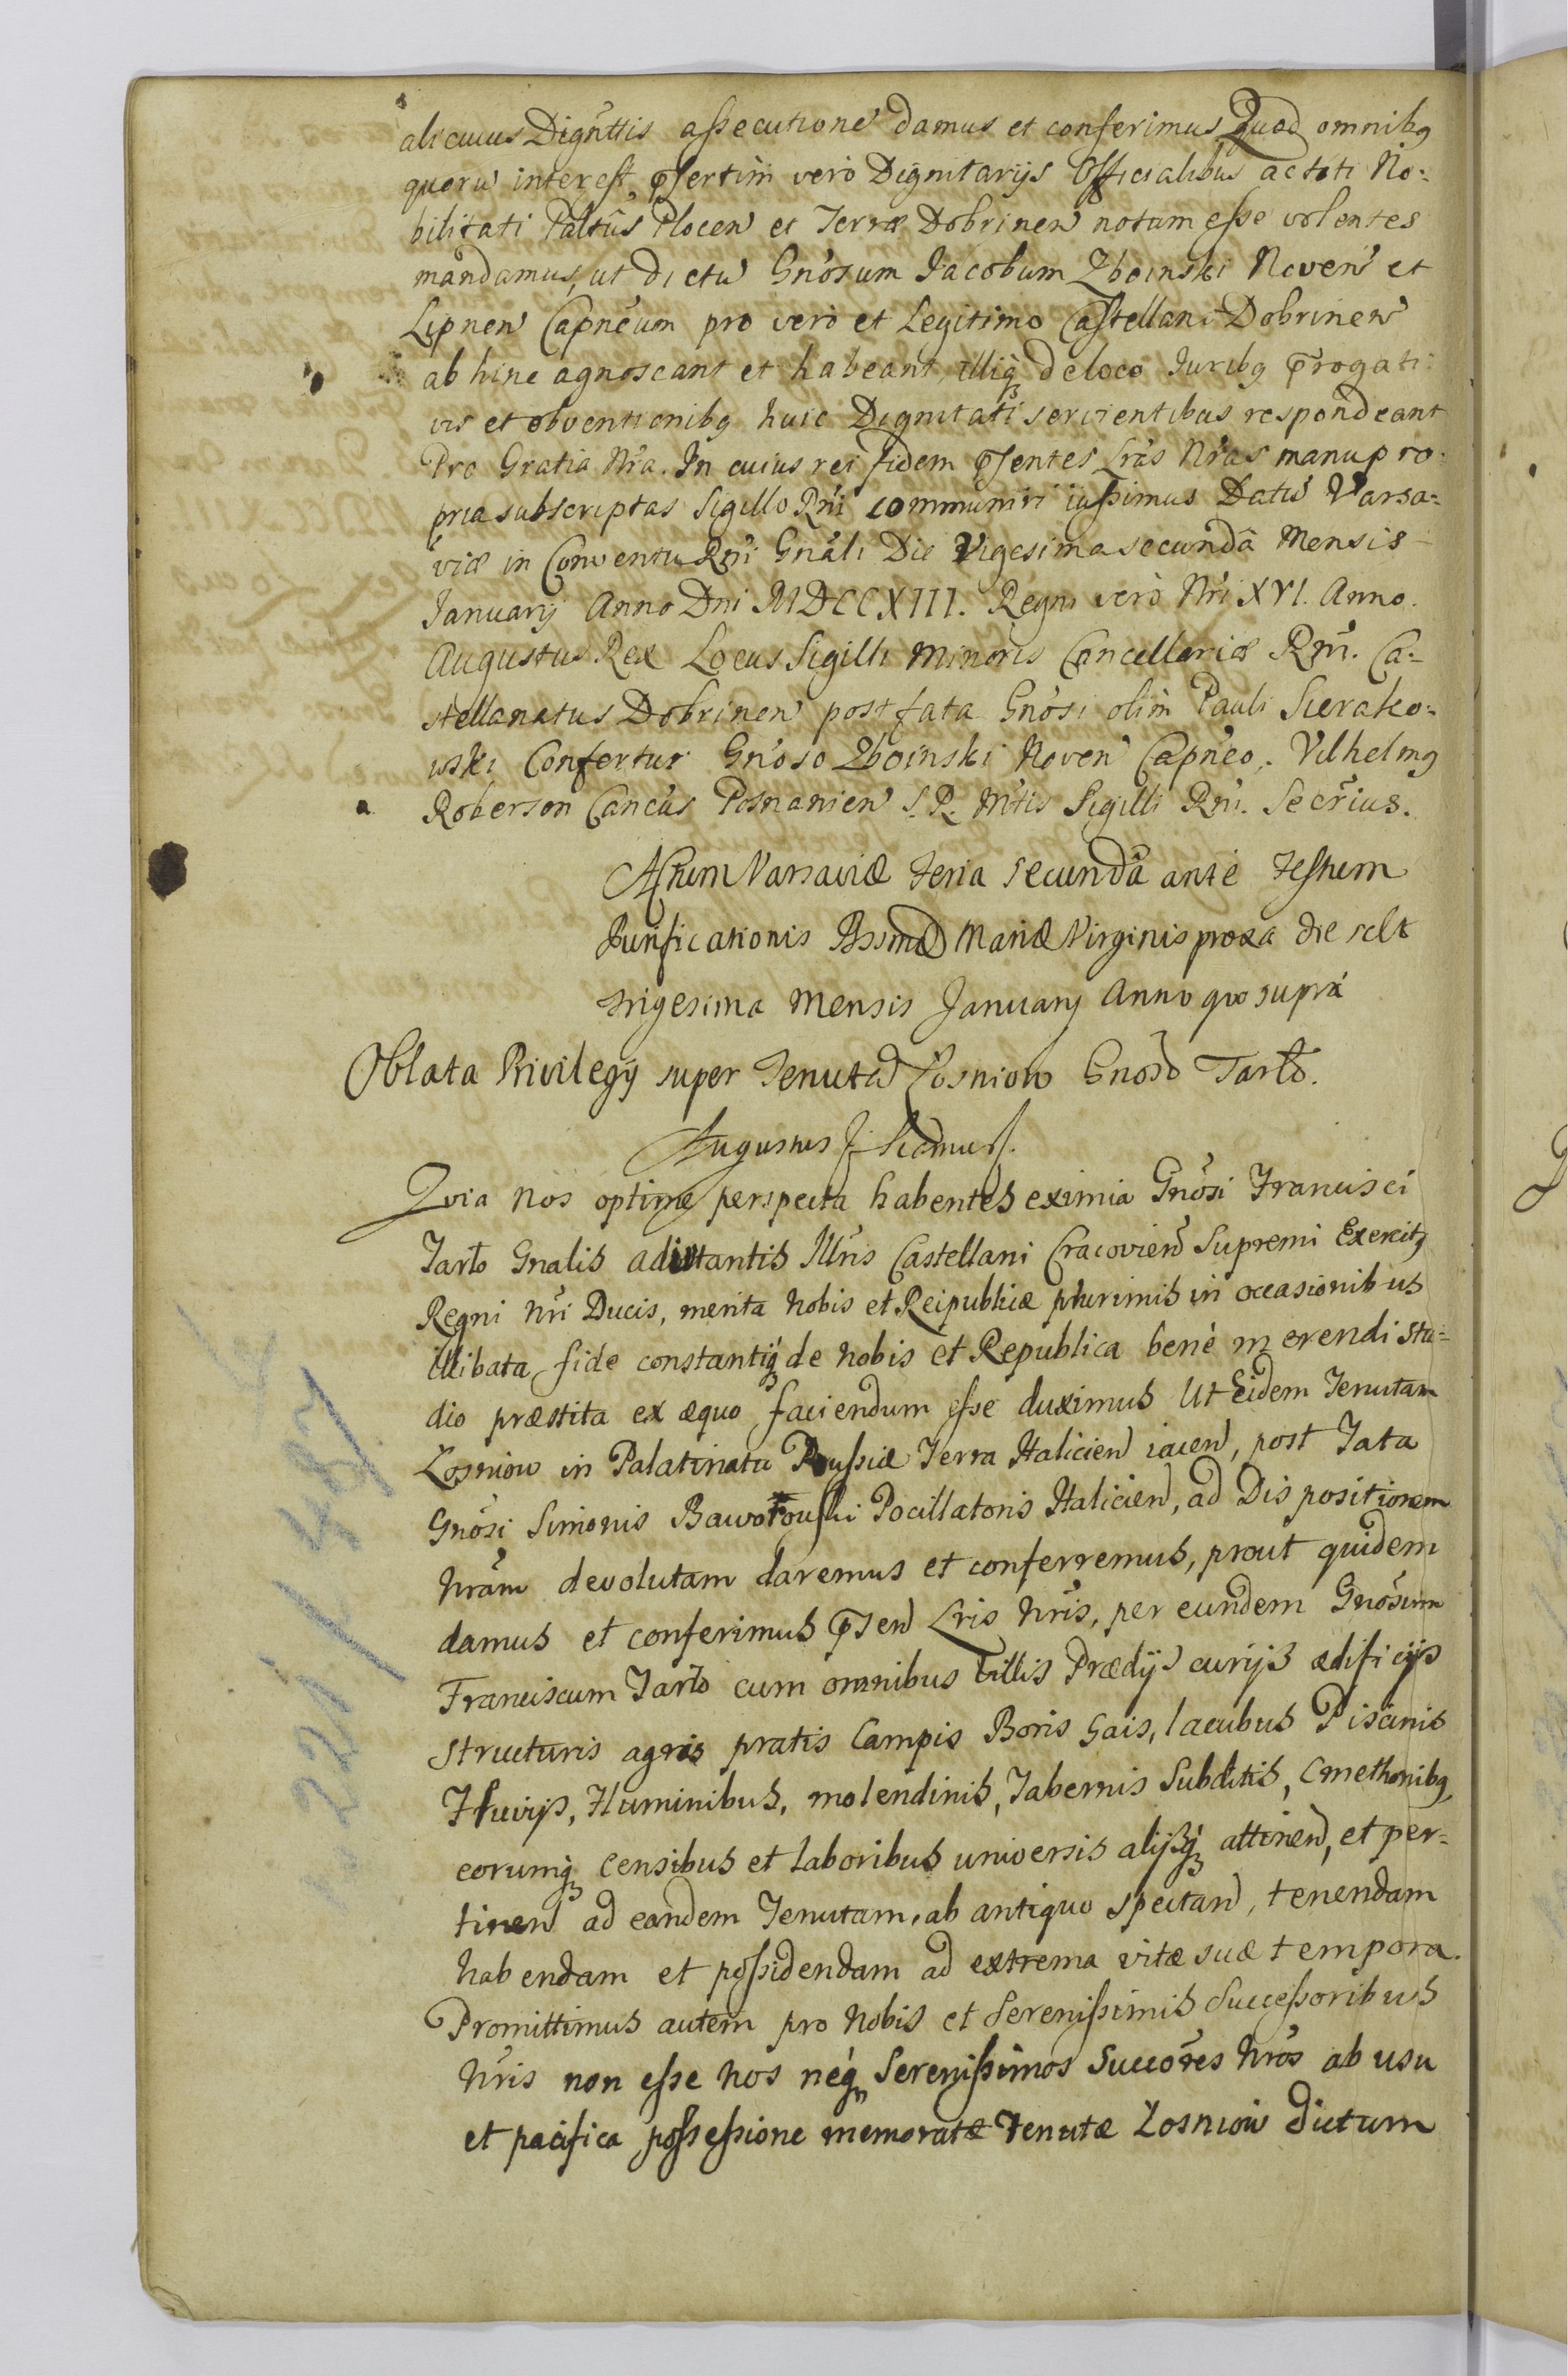 alicuius Dignttis assecutione damus et conferimus Quod omnibq
quoru interest, pfsertim vero Dignitarijs Officialibus ac toti No:
bilitati Paltus Plocen et Terræ Dobrinen notum esse volentes
mandamus, ut dictu Gnosum Jacobum Zboinski Noven et
Lipnen Capneum pro vero et Legitimo Castellano Dobrinen
ab hinc agnoscant et habeant, illiq de loco Juribq progati:
vis et obventionibq huic Dignitati servientibus respondeant
Pro Gratia Nra. In cuius rei fidem psentes Lras Nras manu pro:
pria subscriptas Sigillo Rni communiri iussimus Datu Varsa:
viæ in Conventu Rni Gnali Die Vigesima secunda Mensis
Januarij Anno Dni MDCCXIII. Regni vero Nri XVI. Anno.
Augustus Rex Locus Sigilli Minoris Cancellariæ Rni. Ca:
stellanatus Dobrinen post fata Gnosi olim Pauli Sierako:
wski Confertur Gnoso Zboinski Noven Capneo. Vilhelmq
Roberson Cancus Posnanien S. R. Mtis Sigilli Rni. Secrius.
Actum Varsaviæ Feria secunda ante Festum
Purificationis Bssmæ Mariæ Virginis proxa die sclt
trigesima Mensis Januarij Anno quo supra
Oblata Privilegij super Tenuta Łosniow Gnoso Tarło.
Augustus
Quia nos optime perspecta habentes eximia Gnosi Francisci
Tarło Gnalis adiutantis Illris Castellani Cracovien Supremi Exercitq
Regni Nri Ducis, merita Nobis et Reipublicæ plurimis in occasionibus
illibata fide constantiq de Nobis et Republica bene merendi stu:
dio præstita ex æquo faciendum esse duximus Ut Eidem Tenutam
Łosniow in Palatinatu Russiæ Terra Halicien iacen, post Fata
Gnosi Simonis Baworowski Pocillatoris Halicien, ad Dispositionem
Nram devolutam daremus et conferremus, prout quidem
damus et conferimus psen Lris Nris, per eundem Gnosum
Franciscum Tarło cum omnibus Villis Prædijs curijs ædificijs
structuris agris pratis Campis Boris Gais, lacubus Piscinis
Fluvijs, Fluminibus, molendinis, Tabernis Subditis, Cmethonibq
eorumq Censibus et Laboribus universis alijsq attinen, et per:
tinen ad eandem Tenutam, ab antiquo spectan, tenendam
habendam et possidendam ad extrema vitæ suæ tempora.
Promittimus autem pro Nobis et Serenissimis Successoribus
Nris non esse Nos neq Serenissimos Succores Nros ab usu
et pacifica possessione memoratæ Tenutæ Łosniow dictum